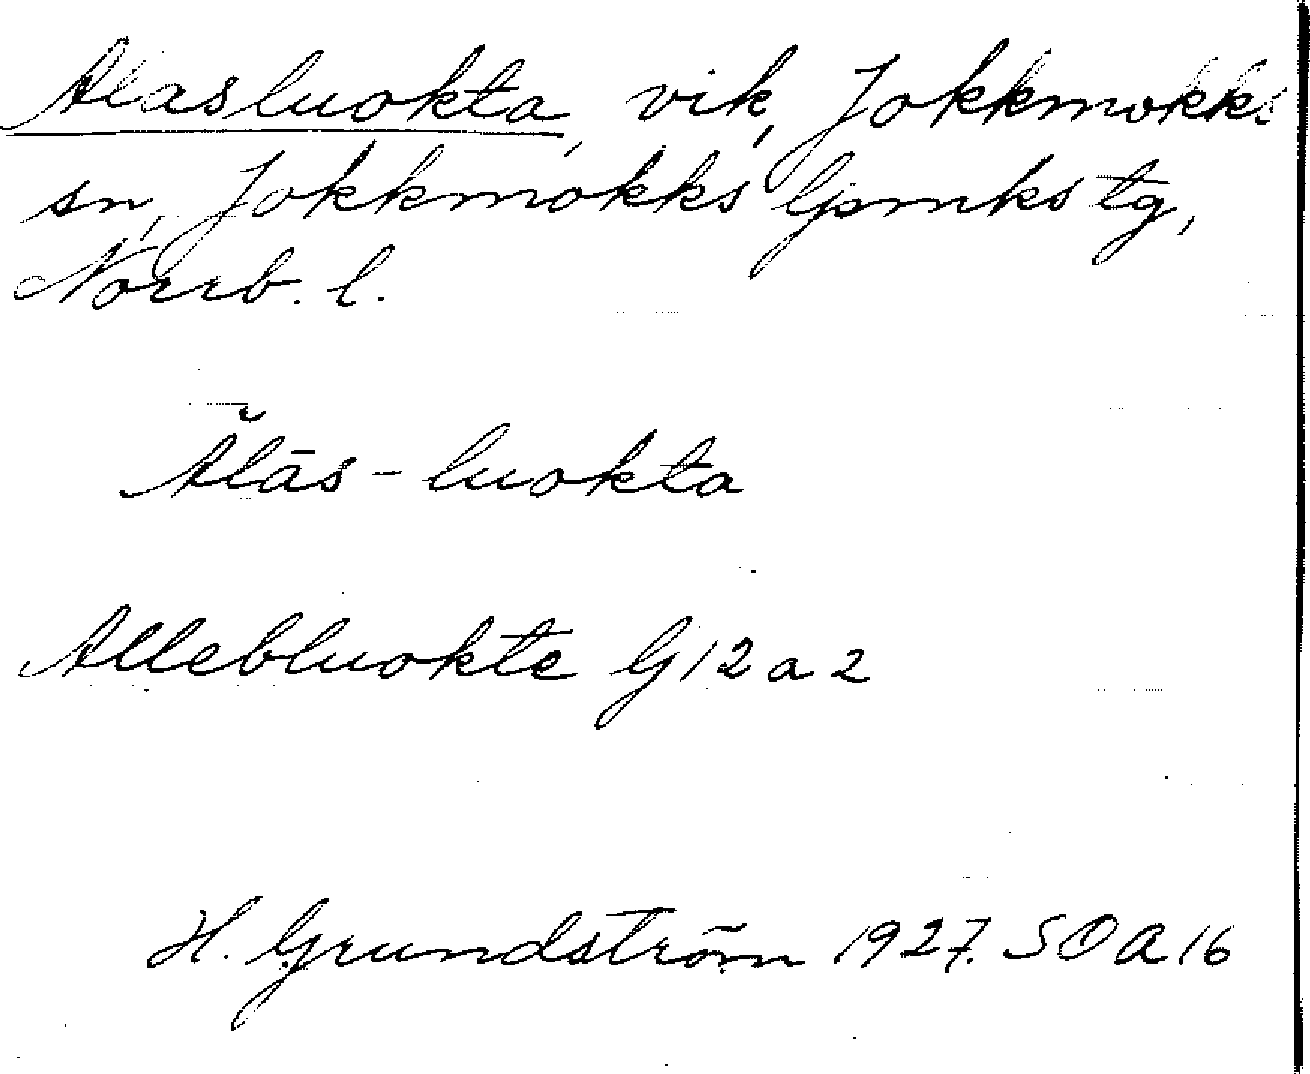 Alasluokta, vik, Jokkmokks
sn, Jokkmokks lpmks tg,
Norrb. l.
Ălās-luokta
Allebluokte G12a2
H. Grundström 1927. SOA16